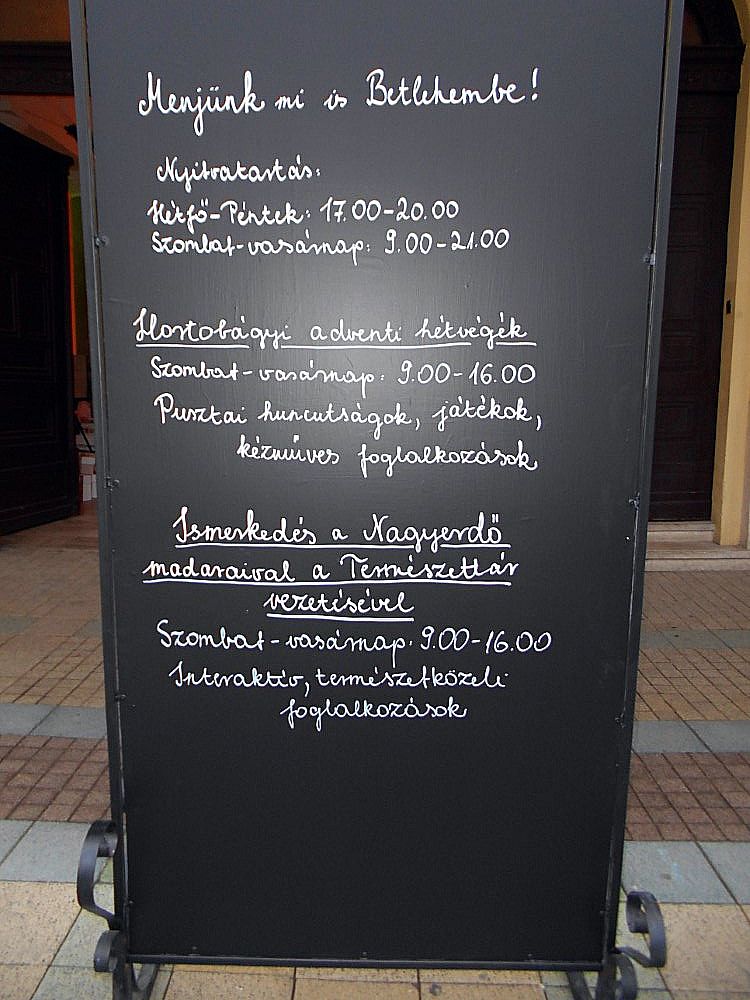 Menjünk mi is Betlehembe!
Nyitvatartás:
Hétfő-Péntek: 17.00-20.00
Szombat-vasárnap: 9.00-21.00
Hortobágyi adventi hétvégék
Szombat-vasárnap: 9.00-16.00
Pusztai huncutságok, játékok,
kézműves foglalkozások
Ismerkedés a Nagyerdő
madaraival a Természettár
vezetésével
Szombat-vasárnap: 9.00-16.00
Interaktív, természetközeli
foglalkozások